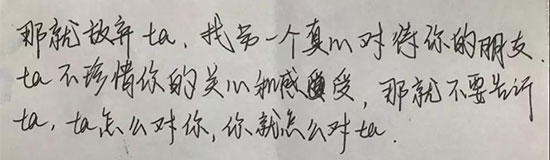 那就放弃ta，找另一个真心对待你的朋友.
ta不珍惜你的关心和感受，那就不要告诉
ta，ta怎么对你，你就怎么对ta.